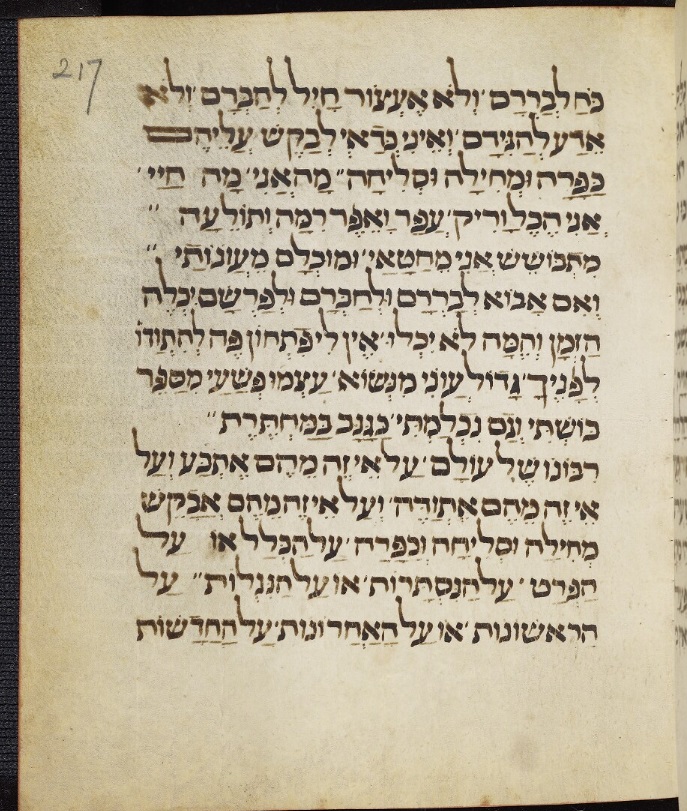 217
כֹּחַ לְבָרְרָם ׳ וְלֹא אֶעְצוֹר חַיִל לְחַבְּרָם ׳ וְלֹא
אֵדַע לְהַגִּידָם ׳ וְאֵינִי כְּדַאי לְבַקֵּשׁ עֲלֵיהֶם
כַּפָּרָה וּמְחִילָה וּסְלִיחָה ״ מָה אֲנִי ׳ מֶה חַיַּי ׳
אֲנִי הֶבֶל וָרִיק ׳ עָפָר וָאֵפֶר רִמָּה וְתוֹלֵעָה ״
מִתְבּוֹשֵׁשׁ אֲנִי מֵחֲטָאַי ׳ וּמוּכְלָם מֵעֲוֹנוֹתַי ״
וְאִם אָבוֹא לְבָרְרָם וּלְחַבְּרָם וּלְפָרְשָׁם יִכְלֶה
הַזְּמָן וְהֵמָּה לֹא יִכְלוּ ׳ אֵין לִי פִּתְחוֹן פֶּה לְהִתְוַדּוֹ
לְפָנֶיךָ ׳ גָּדוֹל עֲוֹנִי מִנְּשׂוֹא ׳ עָצְמוּ פְּשָׁעַי מִסַּפֵּר
בּוֹשְׁתִּי וְגַם נִכְלַמְתִּי ׳ כְּגַנָּב בַּמַּחְתֶּרֶת ״
רִבּוֹנוֹ שֶׁל עוֹלָם ׳ עַל אֵיזֶה מֵהֶם אֶתְבַּע וְעַל
אֵיזֶה מֵהֶם אֶתְוַדֶּה ׳ וְעַל אֵיזֶה מֵהֶם אֲבַקֵּשׁ
מְחִילָה וּסְלִיחָה וְכַפָּרָה ׳ עַל הַכְּלָל אוֹ עַל
הַפְּרָט ׳ עַל הַנִּסְתָּרוֹת ׳ אוֹ עַל הַנִּגְלוֹת ״ עַל
הָרִאשׁוֹנוֹת ׳ אוֹ עַל הָאַחֲרוֹנוֹת ׳ עַל הַחֲדָשׁוֹת